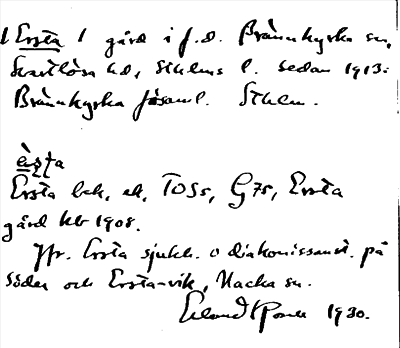 1 Ersta 1 gård i f.d. Brännkyrka sn,
Svartlösa hd, Sthlms l. Sedan 1913:
Brännkyrka förs.   Sthlm.
ersta
Ersta bek, ek, TOS5, G75, Ersta
gård kb 1908.
Jfr. Ersta sjukh. o diakonissanst. på
Söder och Ersta-vik, Nacka sn.
1930.